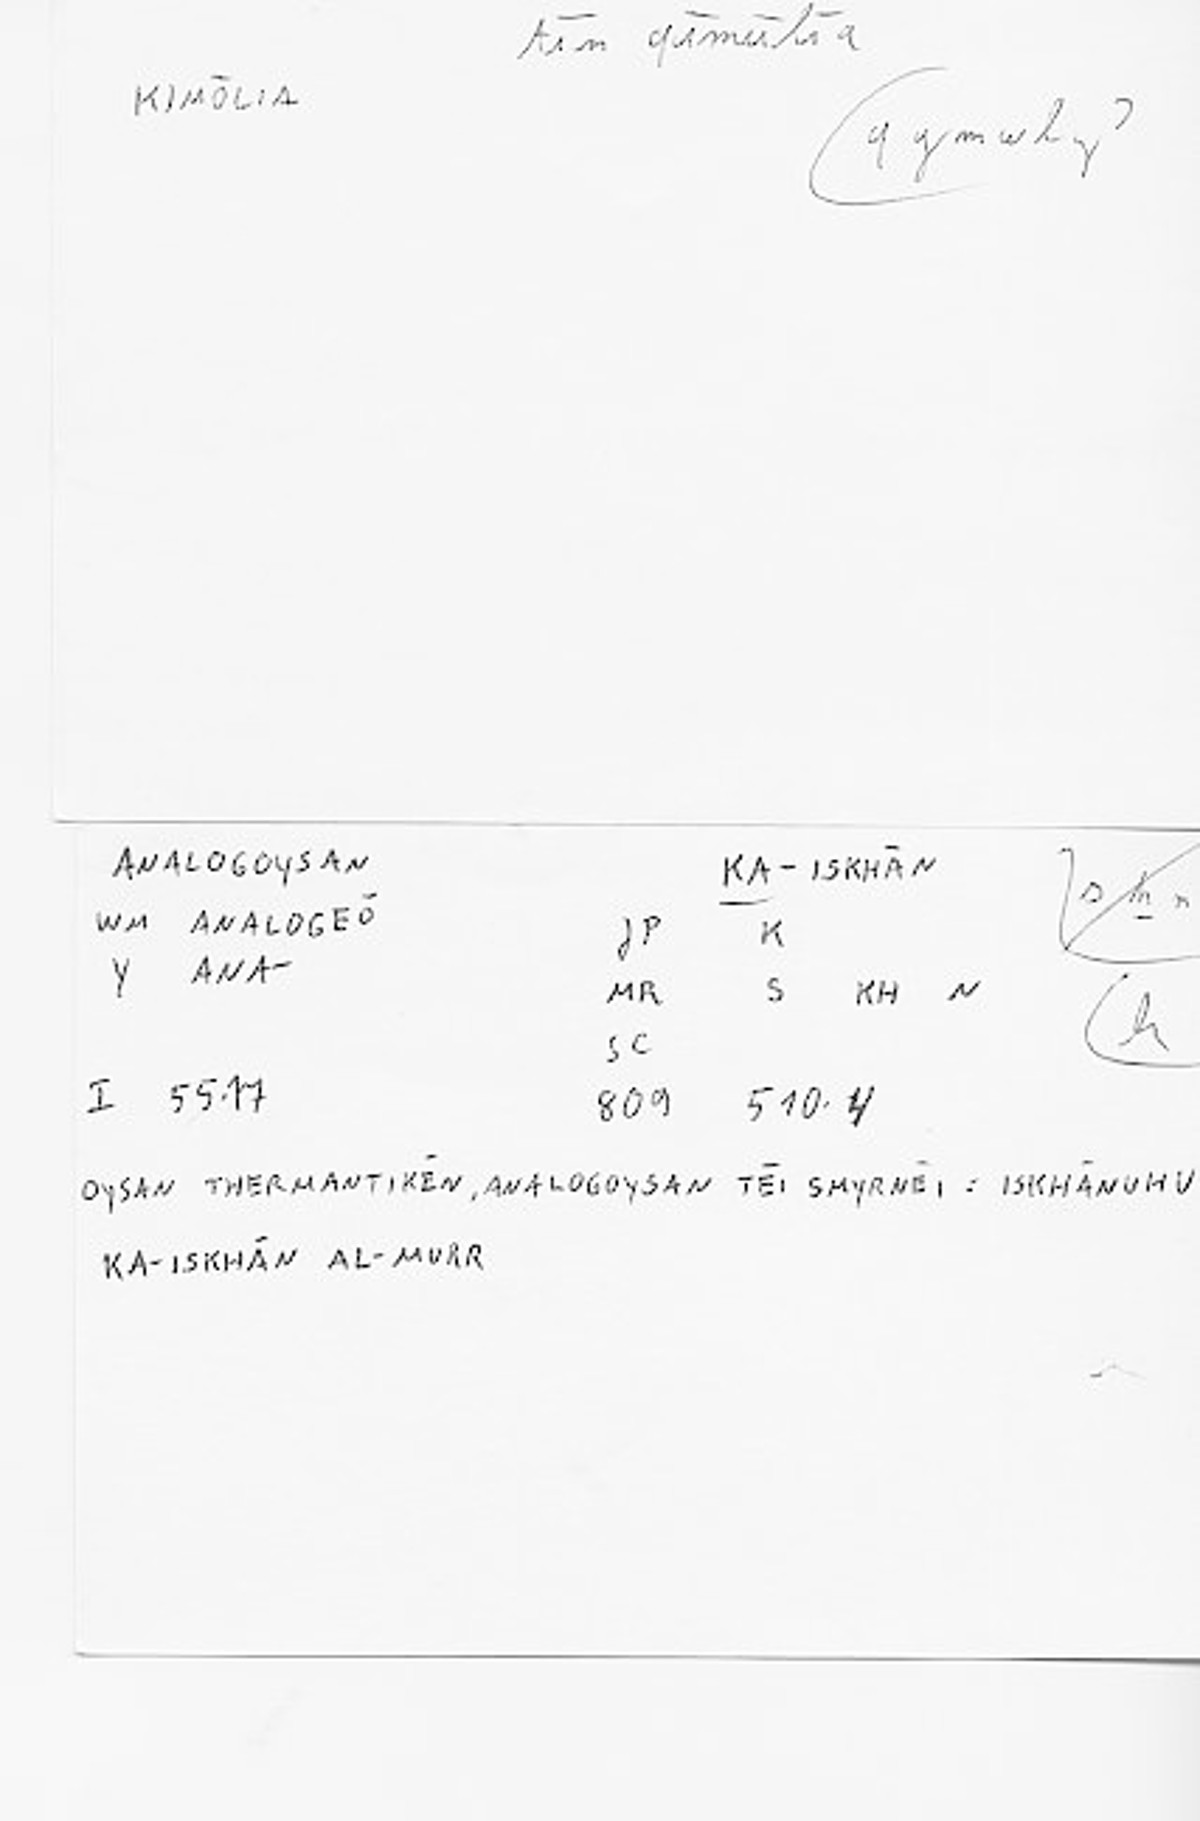 ṭīn qīmūliyā
KIMŌLIA
qymwly
ANALOGOYSAN KA-ISKHĀN
WM ANALOGEŌ JP K
Y ANA-
MR S KH N
SC
I 55.17 809 510.4
OYSAN THERMANTIKĒN, ANALOGOYSAN TĒI SMYRNĒI : ISKHĀNUHU
KA-ISKHĀN AL-MURR